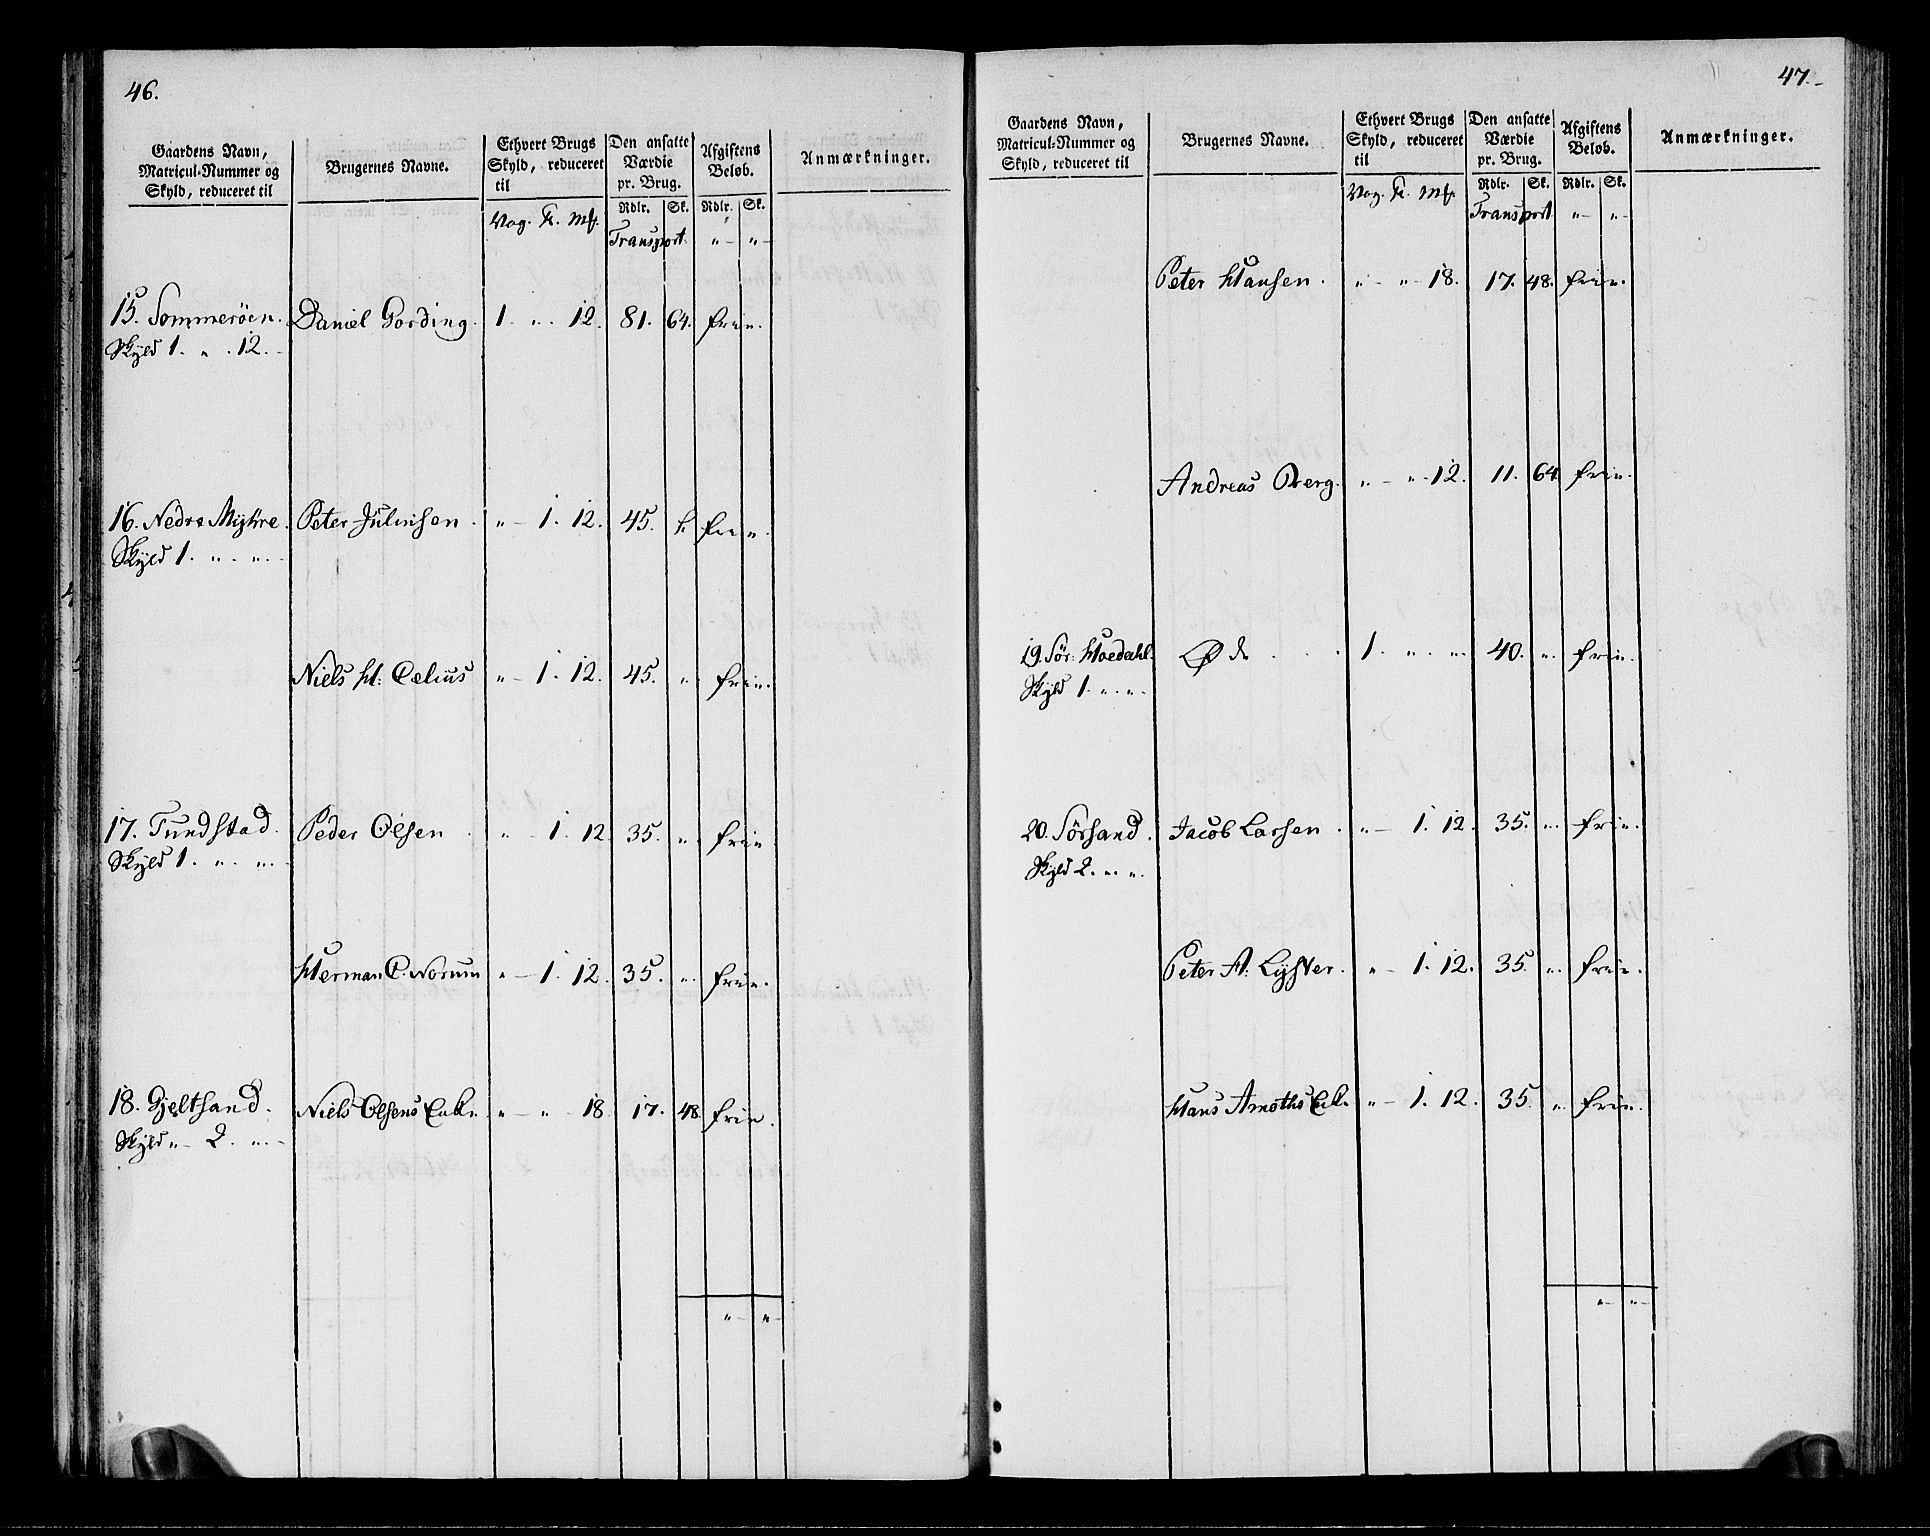 46.
Gaardens Navn, Matricul-Nummer og Skyld, reduceret til
Brugernes Navne.
Ethvert Brugs Skyld, reduceret til
Den ansatte Værdie pr. Brug.
Afgiftens Beløb.
Anmærkninger.
Rdlr. Sk. Rdlr. Sk.
Vog. Mk.
Transport. " - " -
15. Sommerøen. Daniel Gording. 1. " . 12. 81. 64. frie.
Skyld 1. " . 12.
16. Nedre Myhre. Peter Julinsen. " - 1. 12. 45. frie.
Skyld 1. " . ".
Niels H: Celius " - 1. 12. 45. " frie.
17. Tundstad. Peder Olsen. " - 1. 12. 35. " frie.
Skyld 1. " . ".
Herman C. Norum " - 1. 12. 35. " frie.
18. Gjeltsand. Niels Olsens Enke. " - " - 18. 17. 48. frie.
Skyld " - 2. ".
" - " -
47.
Gaardens Navn, Matricul-Nummer og Skyld, reduceret til
Brugernes Navne.
Ethvert Brugs Skyld, reduceret til
Den ansatte Værdie pr. Brug.
Afgiftens Beløb.
Anmærkninger.
Rdlr. Sk. Rdlr. Sk.
Vog. Mk.
Transport " - " -
Peter Hansen. " - " - 18. 17. 48. frie.
Andreas Berg. " - " - 12. 11. 64. frie.
19. Sør: Hoedahl. Øde 1. " . ". 40. " frie.
Skyld 1. " . ".
20. Sørsand. Jacob Larsen. " - 1. 12. 35. " frie.
Skyld 2. " . ".
Peter A: Lyster. " - 1. 12. 35. " frie.
Hans Arnoths Enke " - 1. 12. 35. " frie.
" - " -